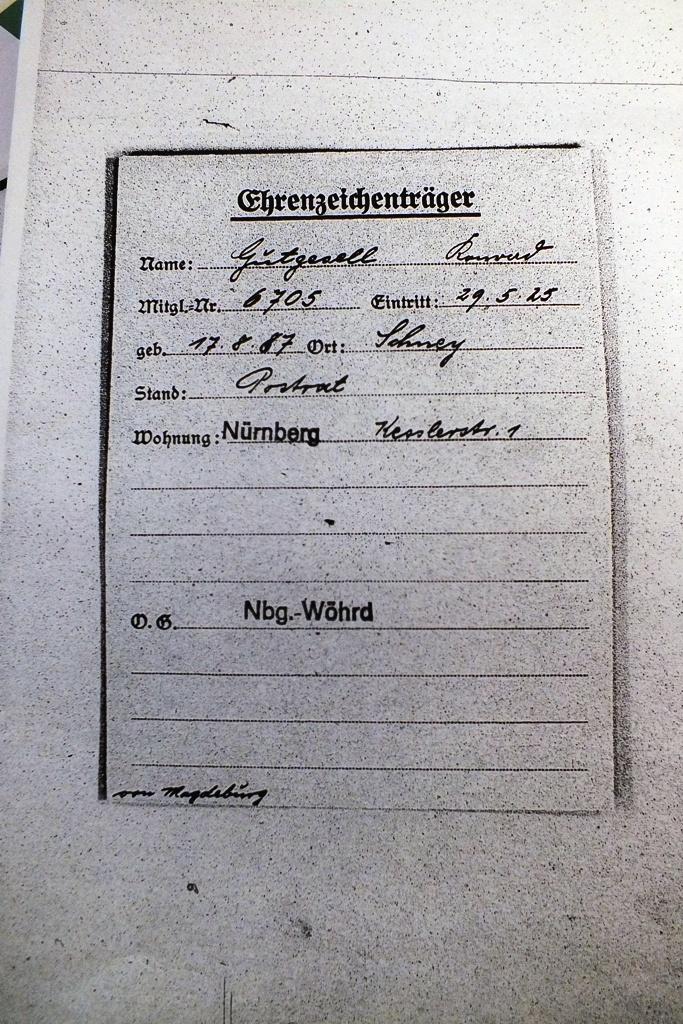 Ehrenzeichenträger
Name: Gutgesell Konrad
Mitgl.-Nr. 6705 Eintritt: 29.5.25
geb. 17.8.87 Ort: Schney
Stand: Postrat
Wohnung: Nürnberg Kesslerstr. 1
O.G. Nbg.-Wöhrd
von Magdeburg